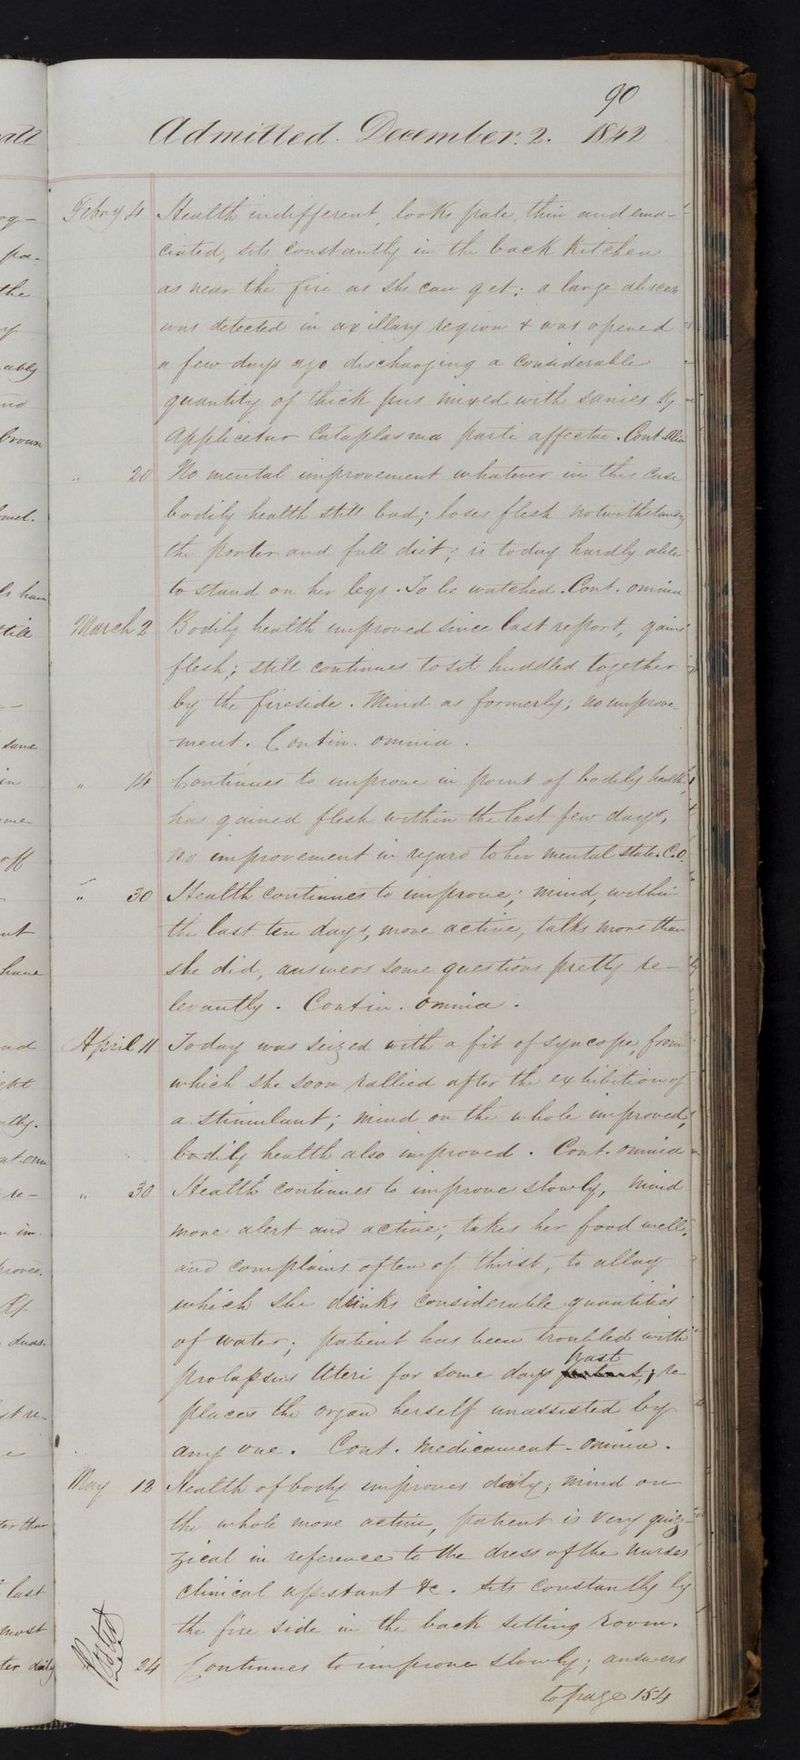 90
Admitted. December. 2. 1842
Febry 4 Health indifferent, looks pale, thin and ema-
ciated, sits constantly in the back Kitchen
as near the fire as she can get; a large abscess
was detected in axillary region & was opened
a few days ago discharging a considerable
quantity of thick pus mixed with sanies
Applicetur Cataplasma parti affectae. Cont. alia
" 20 No mental improvement whatever in this case
bodily health still bad; loses flesh notwithstanding
the porter and full diet; is today hardly able
to stand on her legs. To be watched. Cont. omnia
March 2 Bodily health improved since last report, gains
flesh; still continues to sit huddled together
by the fireside. Mind as formerly; no improve-
ment. Contin. omnia.
" 14 Continues to improve in point of bodily health,
has gained flesh within the last few days,
no improvement in regard to her mental state. C.O.
" 30 Health continues to improve; mind, within
the last ten days, more active, talks more than
she did, answers some questions pretty re-
levantly. Contin. omnia.
April 11 Today was seized with a fit of syncope, from
which she soon rallied after the exhibition of
a stimulant; mind on the whole improved,
bodily health also improved. Cont. omnia
" 30 Health continues to improve slowly, mind
more alert and active; takes her food well,
and complains often of thirst, to allay
which she drinks considerable quantities
of water; patient has been troubled with
prolapsus Uteri for some days past; re
places the organ herself unassisted by
any one. Cont. medicament. omnia.
May 12 Health of body improves daily; mind on
the whole more active, patient is very quiz-
zical in reference to the dress of the nurses
clinical assistant &c. sits constantly by
the fire side in the back sitting room.
24 Continues to improve slowly; answers
to page 154